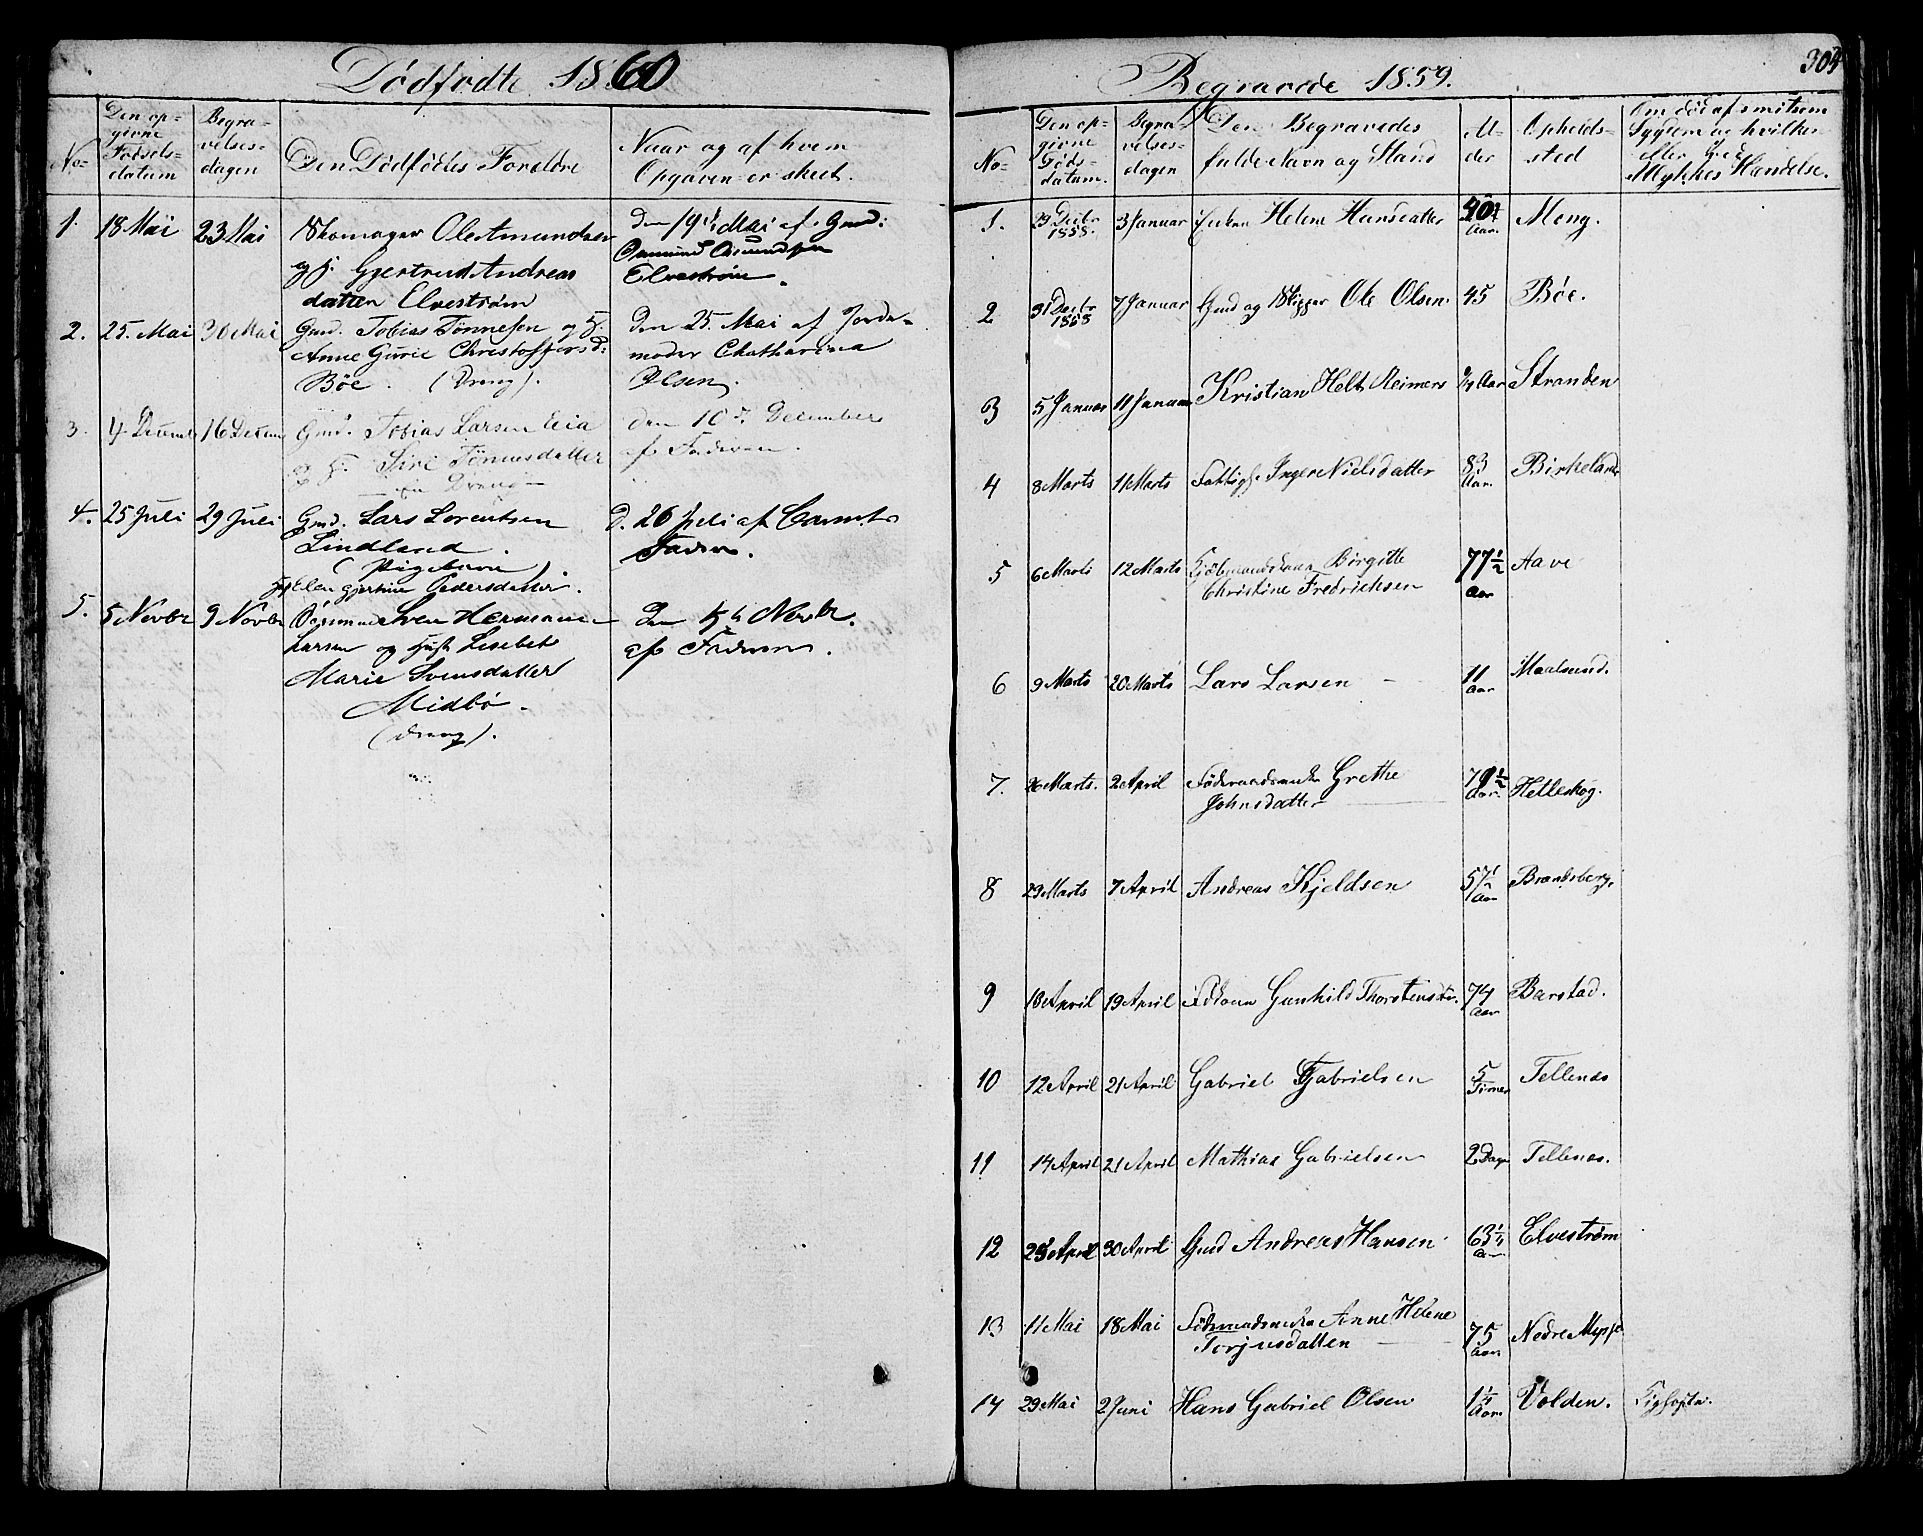 Dødfødte 1860
No
Den op-
givne
Fødsels-
datum
Begra-
velses-
dagen
Den Dødfødtes Forældre
Naar og af hvem
Opgaven er skeet.
1. 18 Mai 23 Mai Skomager Ole Amundsen
og H. Gjertrud Andreas
datter Elvestrøm
Den 19de Mai af Gmd:
Elvestrøm.
2. 25. Mai 30 Mai Gmd. Tobias Tønnesen og H.
Anne Gurie Christoffersd:
Böe. (Dreng).
Den 25. Mai af Jorde-
moder Chatharina
Olsen.
3. 4. Decembr 16 Decem Gmd. Tobias Larsen Eia
og H. Siri Tønnesdatter
– En Dreng –
den 10de December
af Faderen.
4. 25 Juli 29 Juli Gmd. Lars Lorentsen
Lindland.
(Pigebarn).
H. Elen Gjertine Pedersdatter.
D. 26 Juli af Barnets
Fader.
5. 5 Novbr 9 Novbr Sven Herman
Larsen og Hust Lisebet
Marie Svensdatter
Midbö.
(Dreng).
Den 5te Novbr.
af Faderen.
Begravede 1859.
303
No-
Den op-
givne
Døds-
datum.
Begra-
velses-
dagen
Den Begravedes
fulde Navn og Stand
Al-
der
Opholds-
sted
Om død af smitsom
Sygdom og hvilken
eller ved
Ulykkes Hændelse.
1. 29 Decbr 1858. 3 Januar Enken Helene Hansdatter 40 Aar. Meng.
2 31 Decbr 1858 7 Januar Gmd og Skipper Ole Olsen 45 Böe.
3 5 Januar 11 Januar Kristian Holt Reimers Aar Stranden
4 8 Marts 11 Marts Fattigf. Inger Nielsdatter 83 Aar. Birkeland
5 6 Marts 12 Marts Kjöbmandsenke Birgitte
Christine Fredrichsen 77½ Aar Aave
6 9 Marts 20 Marts Lars Larsen – 11 Aar Maalsund.
7. 26 Marts. 2 April Föderaadsenke Grethe
Johnsdatter 79½ Aar. Helleskog.
8 29 Marts 7 April Andreas Kjeldsen 57½ Aar Brandsberg.
9 10 April 19 April Gunhild Thorstensdtr. 74 Aar Barstad.
10 12 April 21 April Gabriel Gabrielsen 5 Timer Tellenæs
11 14 April 21 April Mathias Gabrielsen 2 Dage Tellenæs.
12 25 April 30 April Gmd Andreas Hansen 63¼ Aar Elvestrøm
13 11 Mai 18 Mai Föderaadsenke Anne Helene
Torjusdatter 75 Aar Nedre Mysse
14 29 Mai 2 Juni Hans Gabriel Olsen 1¼ Aar Volden. Kighoste.